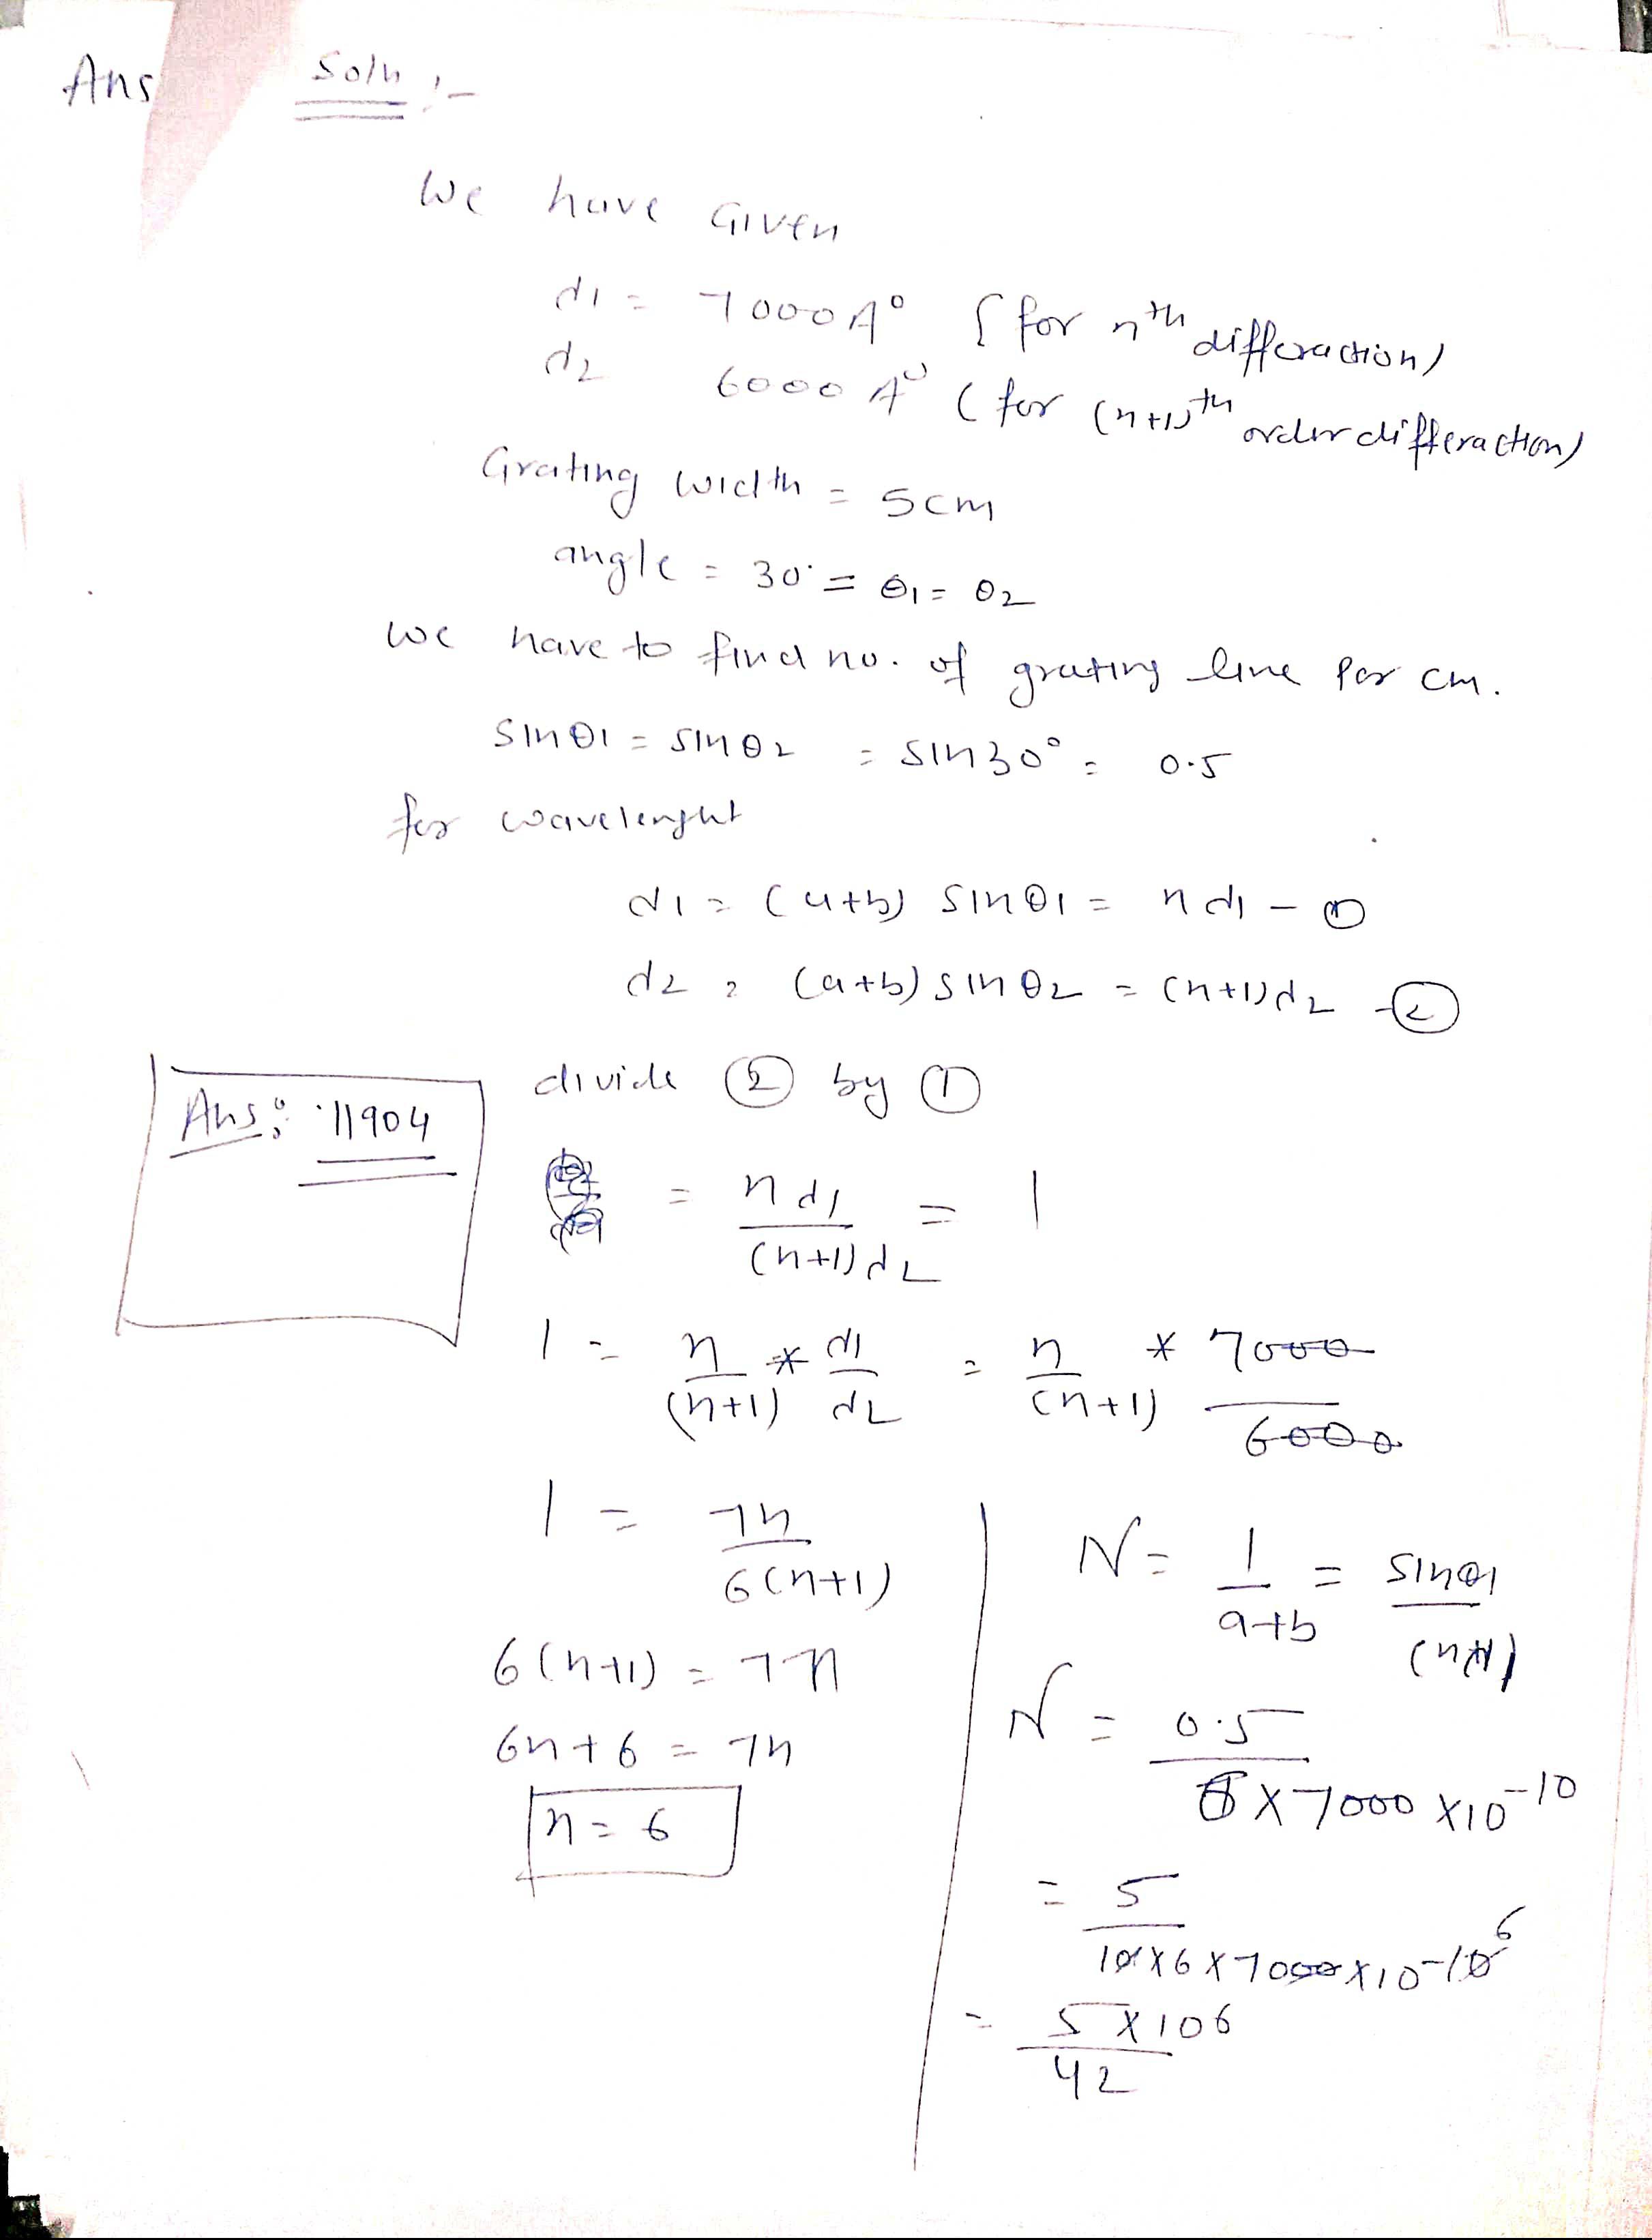 Ans Soln :-
We have Given
d1 = 7000 A° { for nth differaction)
d2 6000 A° ( for (n+1)th order differaction)
Grating width = 5cm
angle = 30° = θ1 = θ2
we have to find no. of grating line per cm.
sinθ1 = sinθ2 = sin30° = 0.5
for wavelenght
d1 = (a+b) sinθ1 = nd1 - ①
d2 = (a+b) sinθ2 = (n+1)d2 - ②
divide ② by ①
Ans: 11904
= nd1 / (n+1)d2 = 1
1 = n/(n+1) * d1/d2 = n/(n+1) * 7000/6000
1 = 7n / 6(n+1)
6(n+1) = 7n
6n+6 = 7n
n = 6
N = 1/a+b = sinθ1 / (n+1)
N = 0.5 / 6 x 7000 x10^-10
= 5 / 10x6x7000x10^-10 6
= 5 x 106 / 42